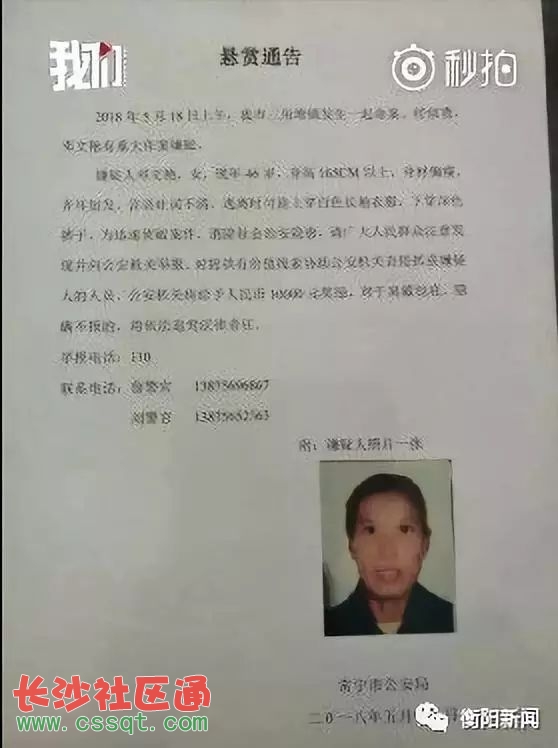 我们
秒拍
悬赏通告
2018年5月18日上午，我市三角塘镇发生一起命案。经侦查，
邓文艳有重大作案嫌疑。
嫌疑人邓文艳，女，现年46岁，身高165CM以上，身材偏瘦，
齐耳短发，讲不清，逃离时可能上穿白色长袖衣服，下穿深色
裤子。为迅速侦破案件，消除社会治安隐患，请广大人民群众注意发
现并向公安机关举报。对提供有价值线索协助公安机关直接抓获嫌疑
人的人员，公安机关将给予人民币10000元奖励。对于窝藏包庇、隐
瞒不报的，将依法追究法律责任。
举报电话：110
联系电话：警官
刘警官
附：嫌疑人照片一张
常宁市公安局
二〇一八年五月 日
长沙社区通
www.cssqt.com
衡阳新闻